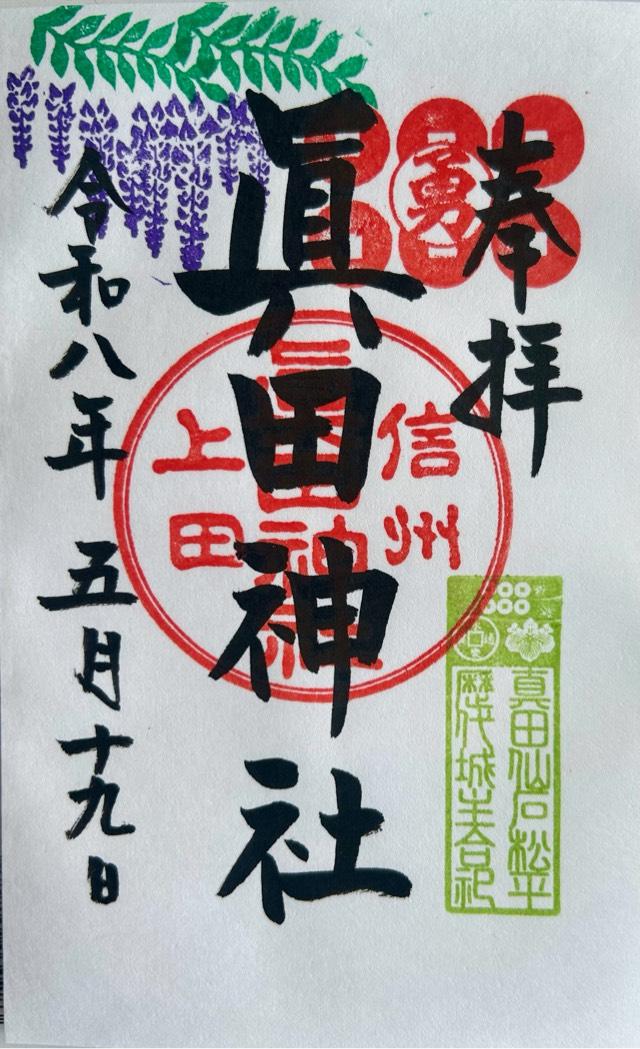 奉拝
勇
眞田神社
信州
眞田神社
上田
真田仙石松平
歴代城主合祀
令和八年 五月十九日